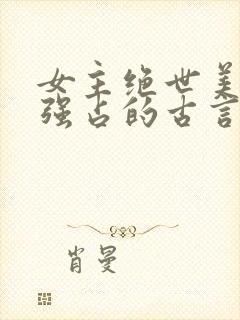 女主绝世美
强占的古言
肖曼